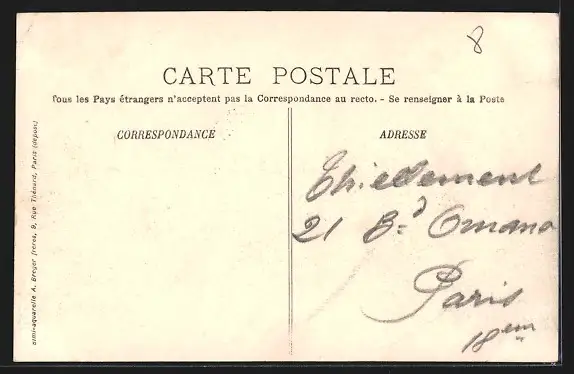 8
CARTE POSTALE
Tous les Pays étrangers n'acceptent pas la Correspondance au recto. - Se renseigner à la Poste
CORRESPONDANCE
ADRESSE
Thiellement
21 Bd Ornano
Paris
18em
Simili-aquarelle A. Breger frères, 9, Rue Thénard, Paris (déposé)